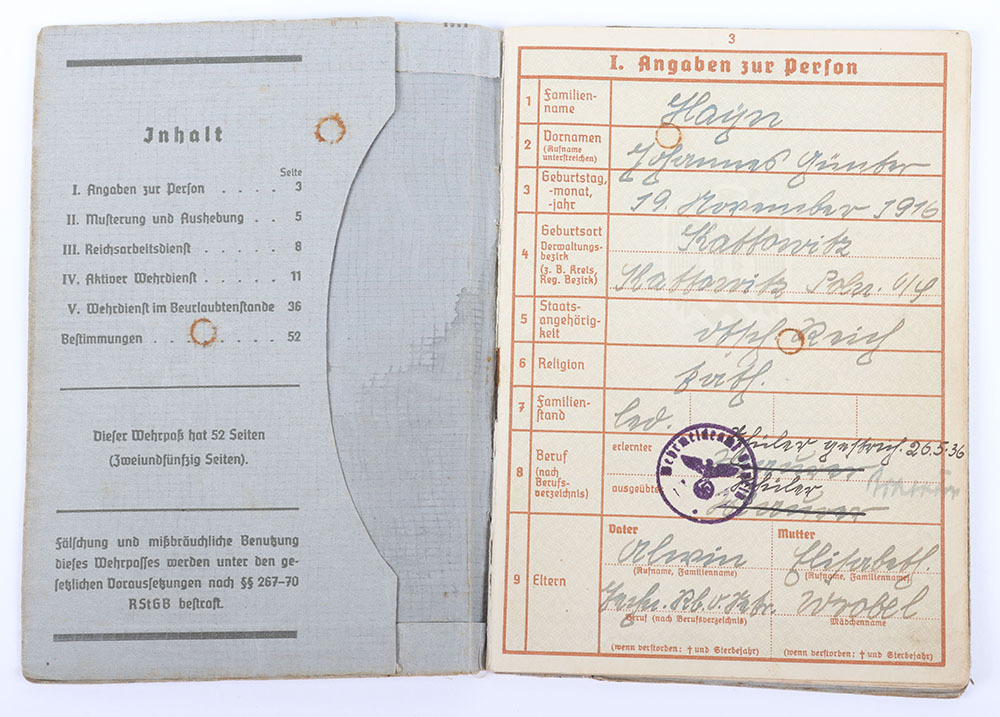 Inhalt
Seite
I. Angaben zur Person . . . . . 3
II. Musterung und Aushebung . . 5
III. Reichsarbeitsdienst . . . . . . 8
IV. Aktiver Wehrdienst . . . . . . 11
V. Wehrdienst im Beurlaubtenstande 36
Bestimmungen . . . . . . . . 52
Dieser Wehrpaß hat 52 Seiten
(Zweiundfünfzig Seiten).
Fälschung und mißbräuchliche Benutzung
dieses Wehrpasses werden unter den ge-
setzlichen Voraussetzungen nach §§ 267–70
RStGB bestraft.
3
I. Angaben zur Person
1 Familien-
name
Hayn
2 Vornamen
(Rufname
unterstreichen)
Johannes Günter
3 Geburtstag,
-monat,
-jahr
19. November 1916
4 Geburtsort
Verwaltungs-
bezirk
(z. B. Kreis,
Reg. Bezirk)
Kattowitz
Kattowitz Poln. O/S
5 Staats-
angehörig-
keit
dtsch. Reich
6 Religion
kath.
7 Familien-
stand
led.
8 Beruf
(nach
Berufs-
verzeichnis)
erlernter
Schüler gestrich. 26.5.36
Maurer
ausgeübter
Schüler
Maurer
Wehrmeldeamt
9 Eltern
Vater
Alwin
(Rufname, Familienname)
Beruf (nach Berufsverzeichnis)
(wenn verstorben: † und Sterbejahr)
Mutter
Elisabeth
(Rufname, Familienname)
Wrobel
Mädchenname
(wenn verstorben: † und Sterbejahr)